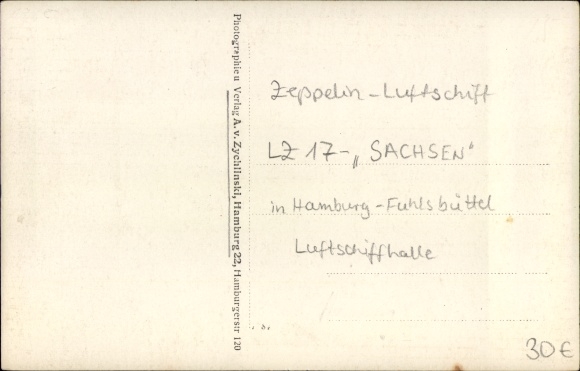 Photographie u Verlag A. v. Zychlinski, Hamburg 22, Hamburgerstr 120
Zeppelin-Luftschiff
LZ 17-„SACHSEN"
in Hamburg-Fuhlsbüttel
Luftschiffhalle
30€